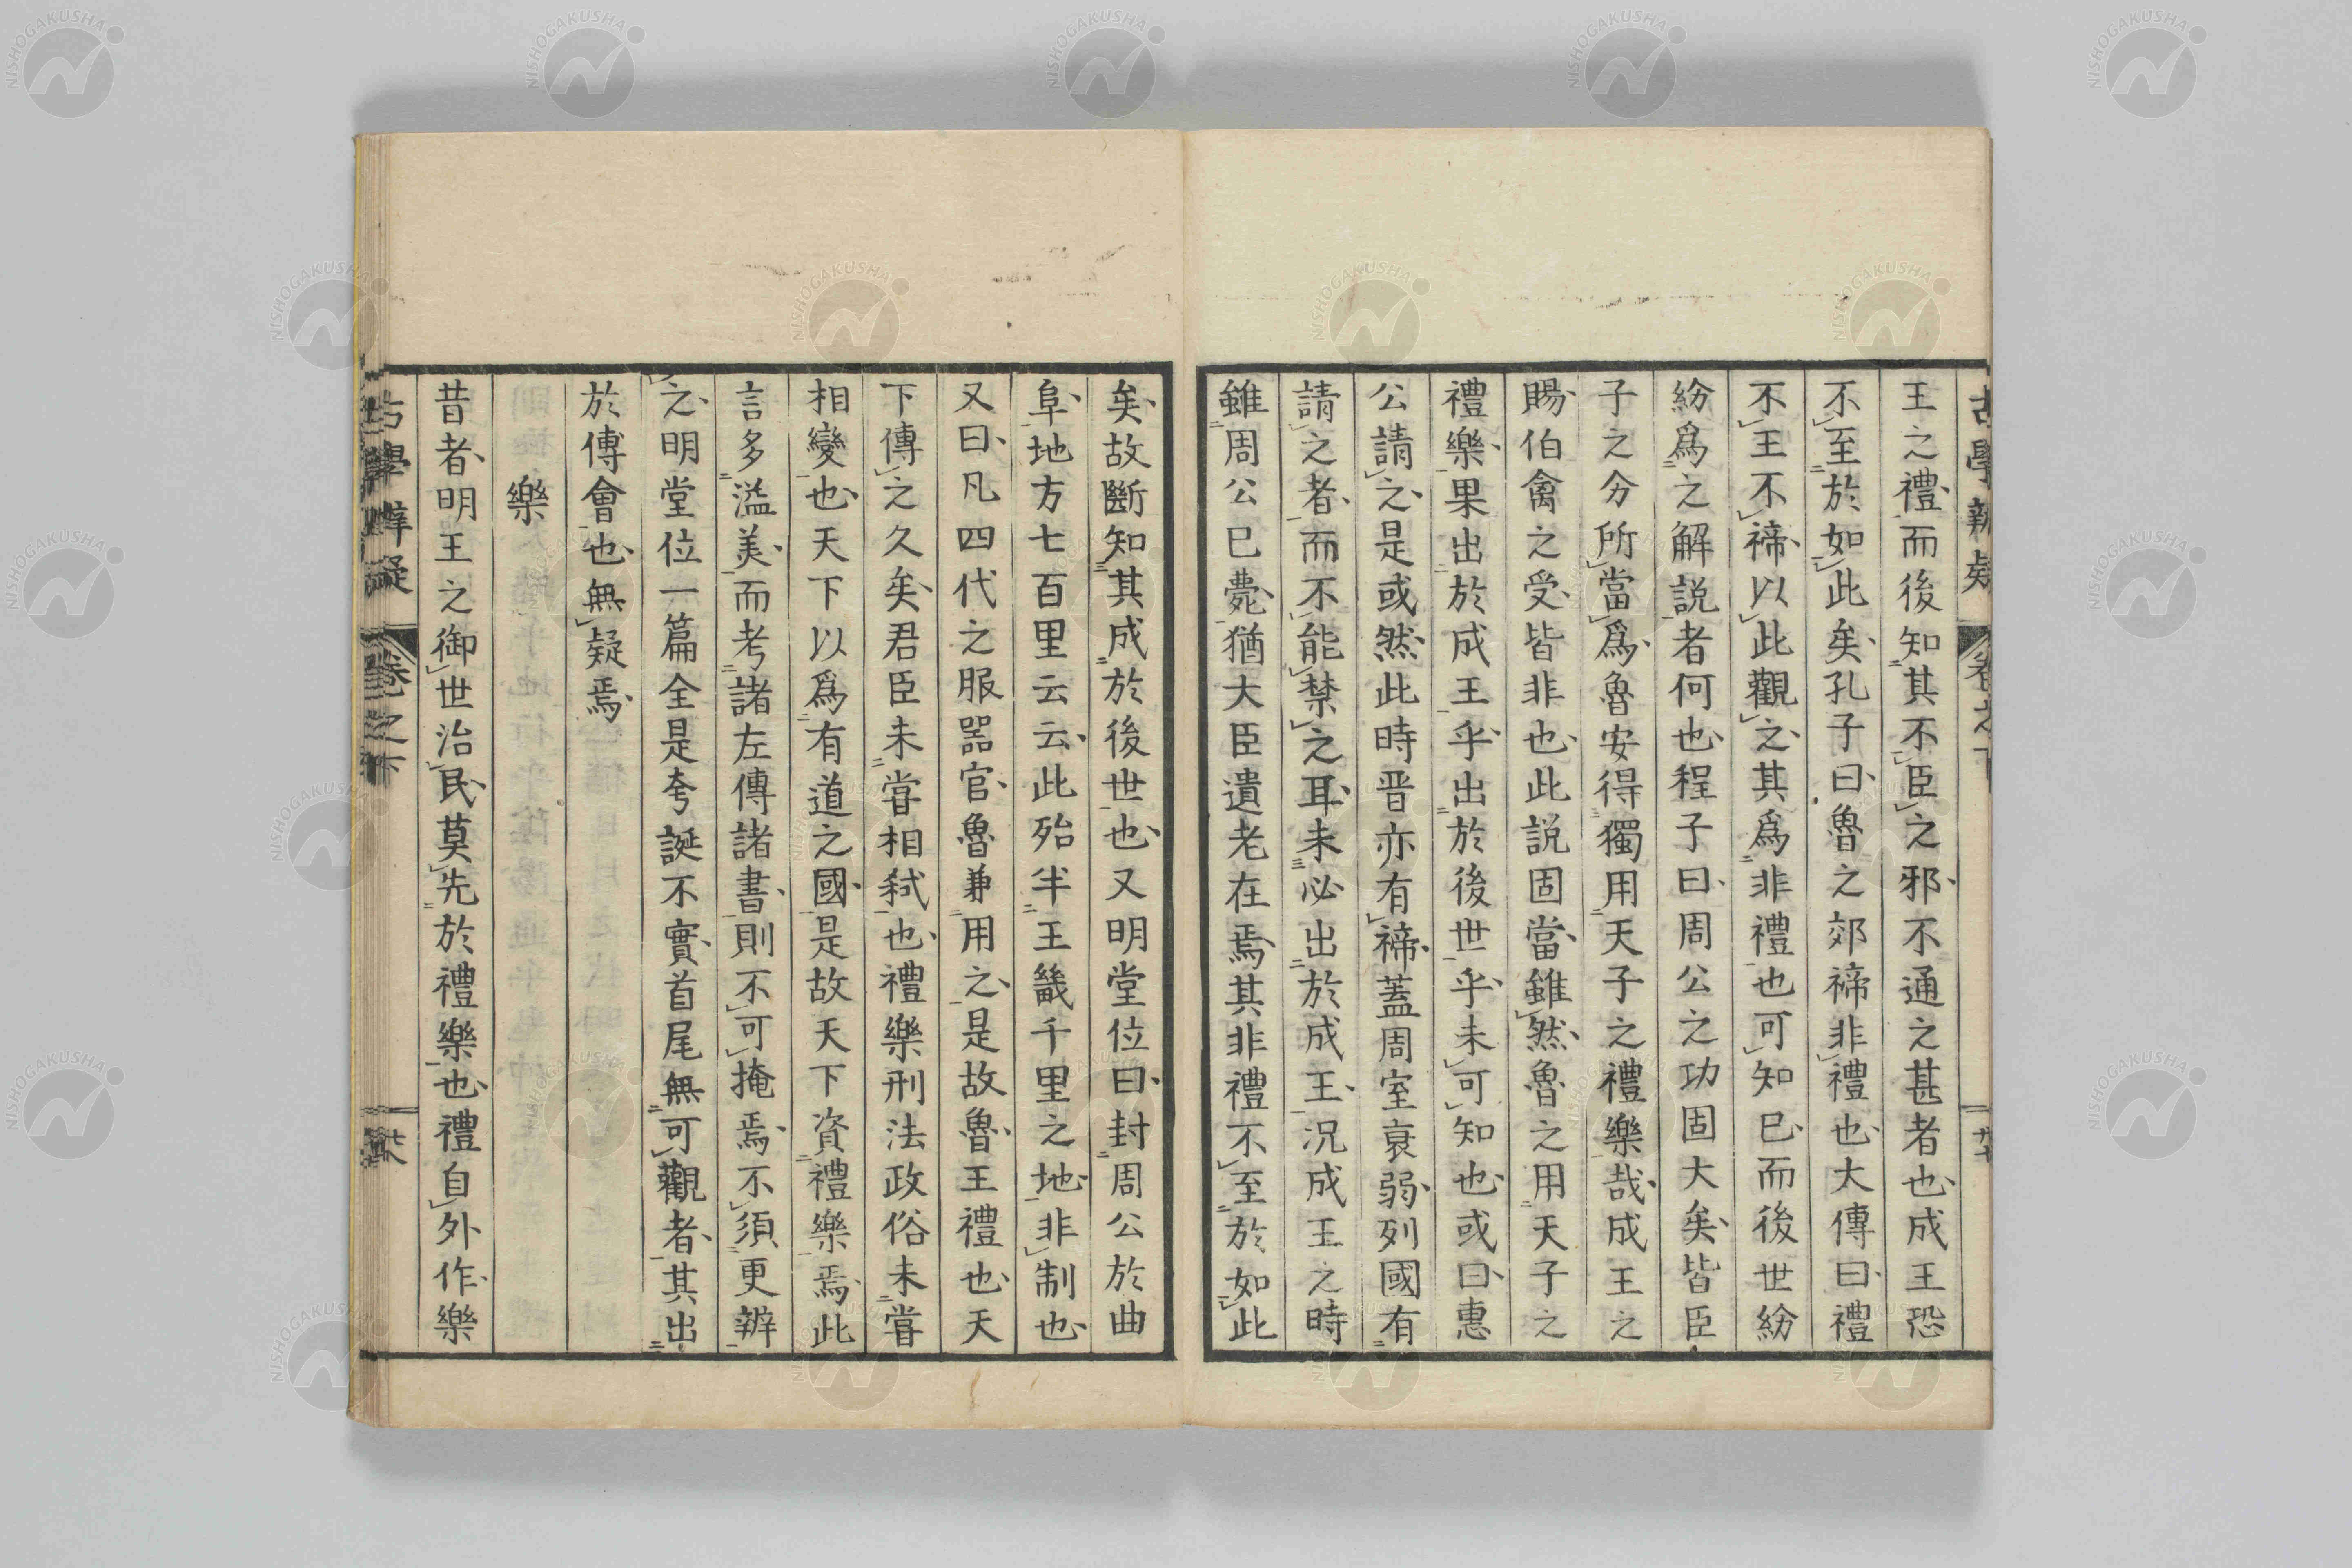 古學辨疑
卷之下
廿七
王之禮、而後知其不臣之邪、不通之甚者也、成王恐
不至於如此矣、孔子曰、魯之郊禘非禮也、大傳曰、禮
不王不禘、以此觀之、其爲非禮也可知已、而後世紛
紛爲之解説者何也、程子曰、周公之功固大矣、皆臣
子之分所當爲、魯安得獨用天子之禮樂哉、成王之
賜、伯禽之受、皆非也、此説固當、雖然、魯之用天子之
禮樂、果出於成王乎、出於後世乎、未可知也、或曰、惠
公請之、是或然、此時晋亦有禘、蓋周室衰弱、列國有
請之者、而不能禁之耳、未必出於成王、况成王之時
雖周公已薨、猶大臣遺老在焉、其非禮不至於如此
矣、故斷知其成於後世也、又明堂位曰、封周公於曲
阜、地方七百里云云、此殆半王畿千里之地、非制也
又曰、凡四代之服噐官、魯兼用之、是故魯、王禮也、天
下傳之久矣、君臣未嘗相弑也、禮樂刑法政俗未嘗
相變也、天下以爲有道之國、是故天下資禮樂焉、此
言多溢美、而考諸左傳諸書、則不可掩焉、不須更辨
之、明堂位一篇全是夸誕不實、首尾無可觀者、其出
於傳會也、無疑焉、
樂
昔者、明王之御世治民、莫先於禮樂也、禮自外作、樂
古學辨疑
卷之下
廿八